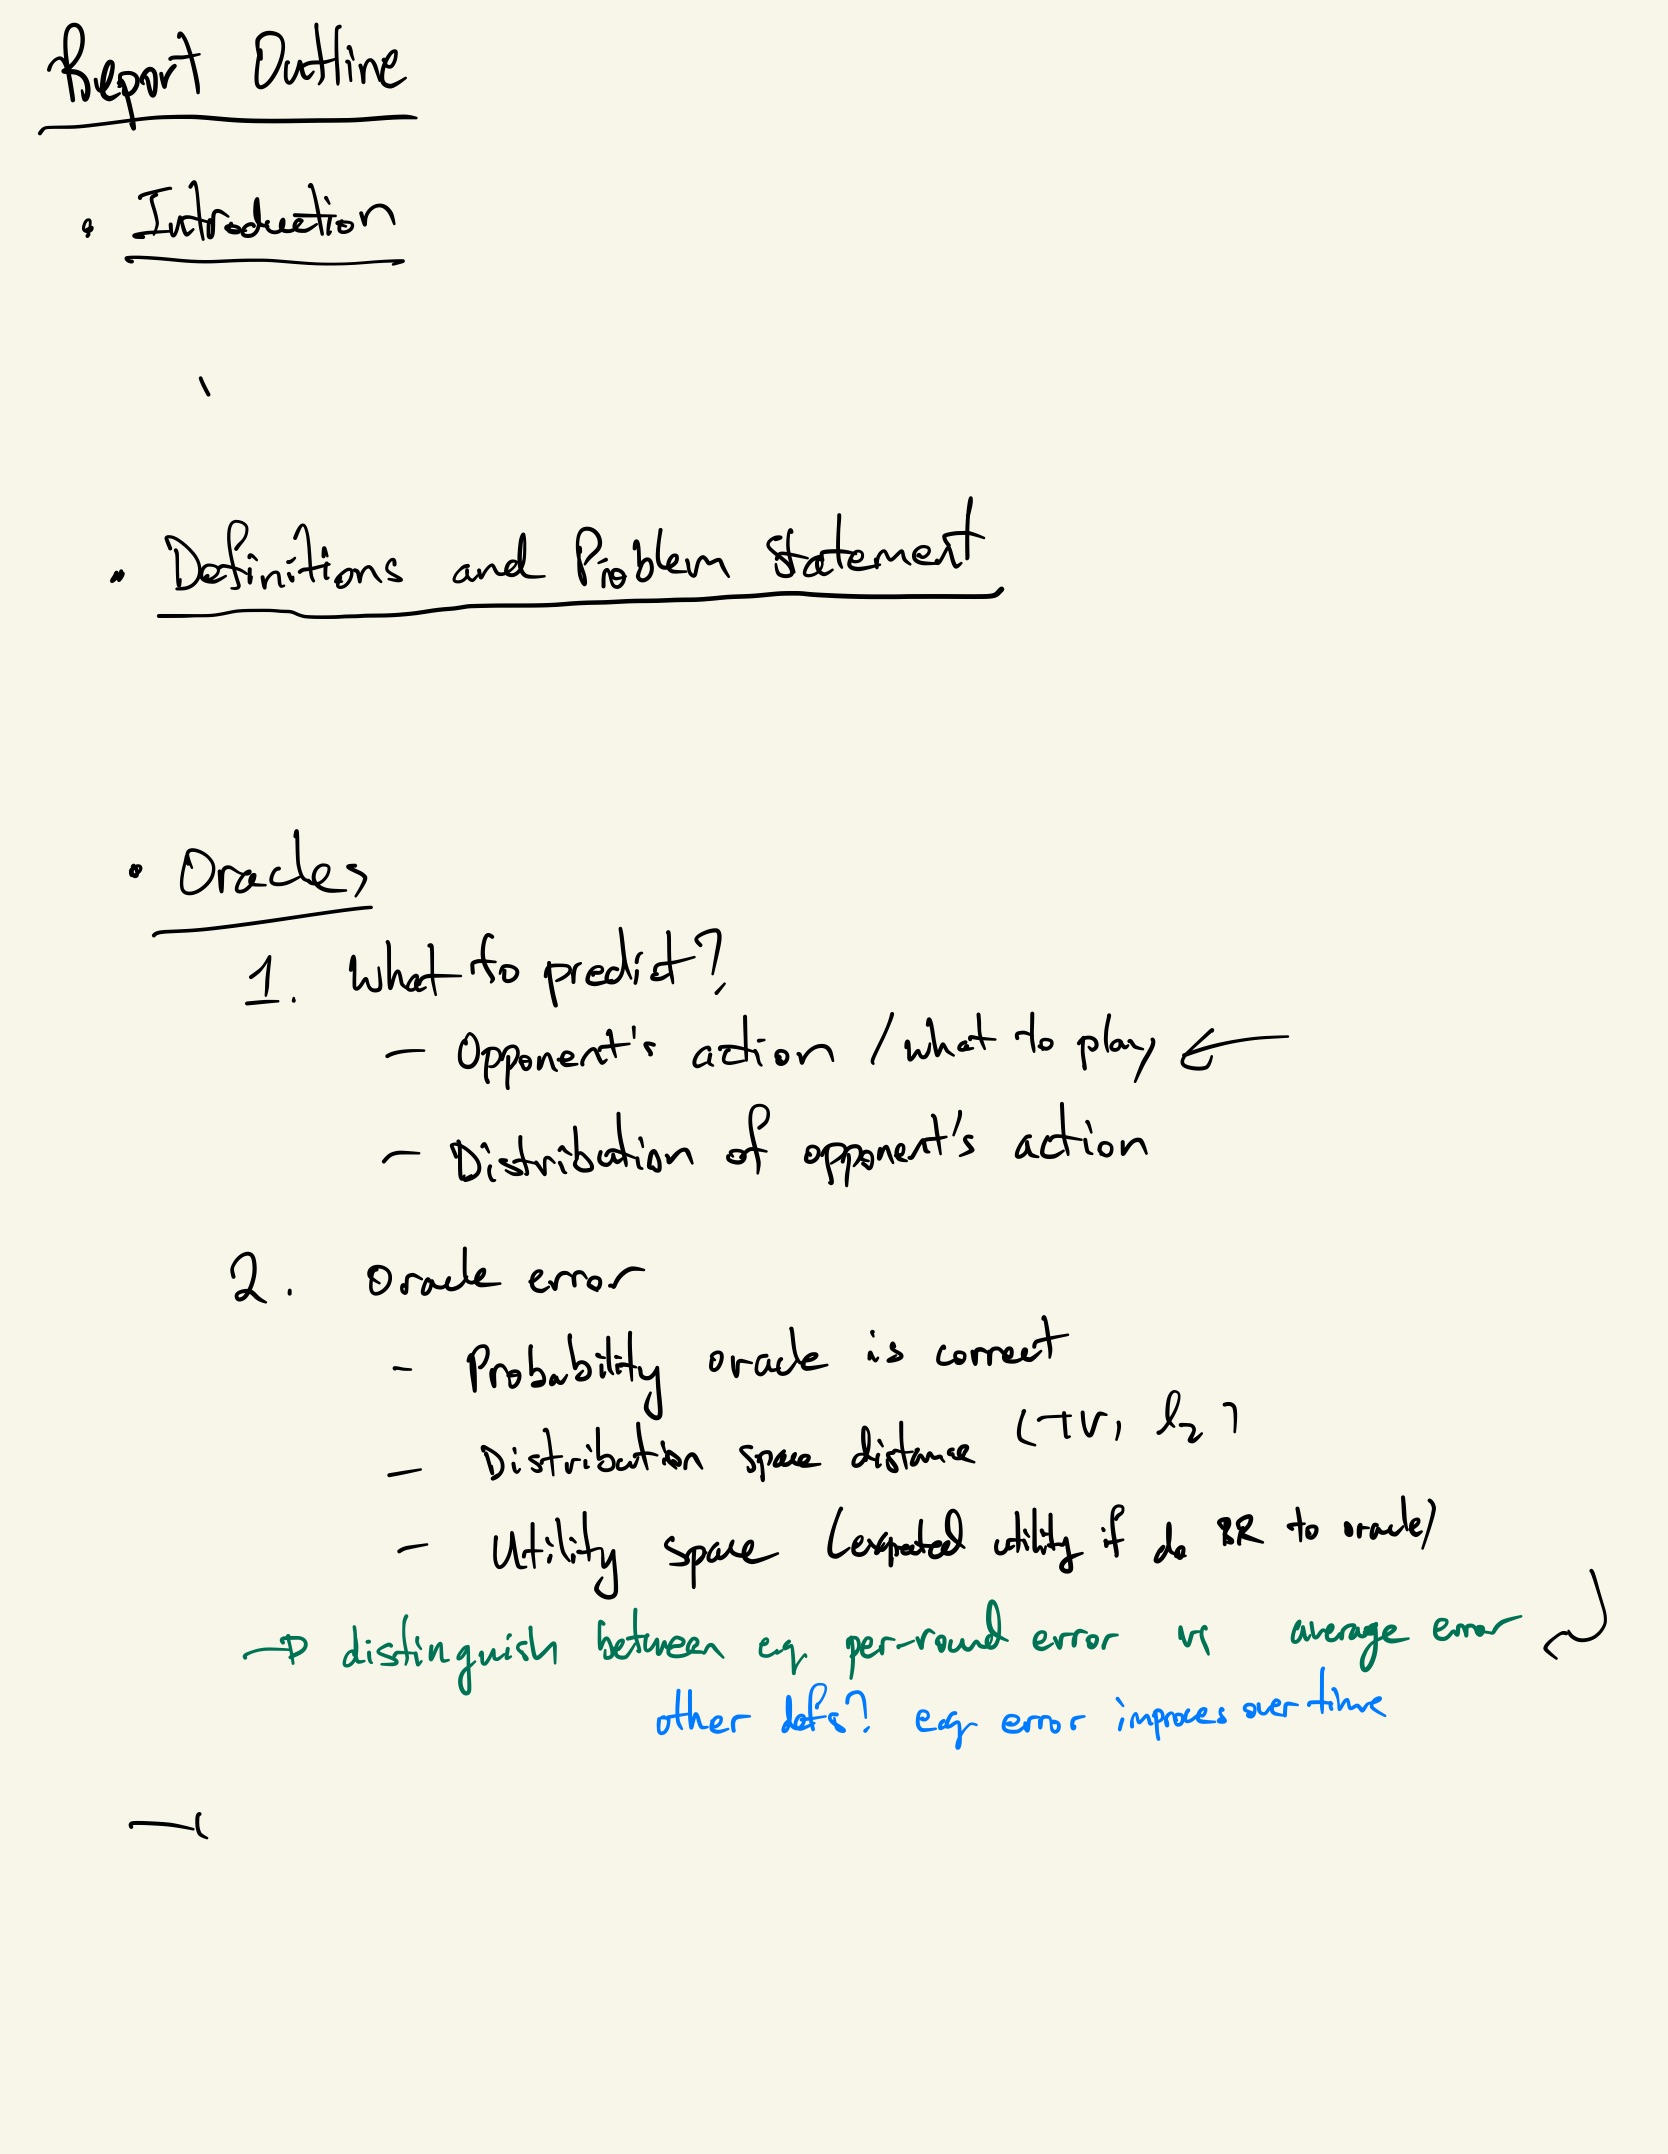 Report Outline
• Introduction
• Definitions and Problem Statement
• Oracles
1. What to predict?
– Opponent's action / what to play ←
– Distribution of opponent's action
2. Oracle error
– Probability oracle is correct
– Distribution space distance (TV, l₂)
– Utility space (expected utility if do BR to oracle)
→ distinguish between eg per-round error vs average error
other defs? eg error improves over time